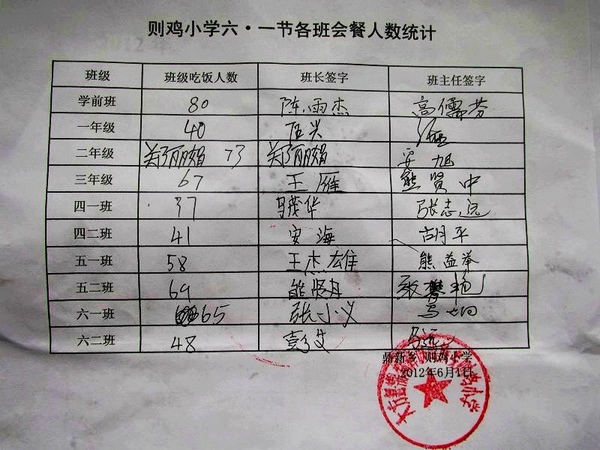 则鸡小学六·一节各班会餐人数统计
班级 班级吃饭人数 班长签字 班主任签字
学前班 80 陈雨杰 高儒芬
一年级 40
二年级 73
三年级 67 王雁 熊贤中
四一班 37 马茂华 张志远
四二班 41 安海 胡平
五一班 58 王杰雄 熊益举
五二班 69
六一班 65 张小义
六二班 48
鼎新乡 则鸡小学
2012年6月1日